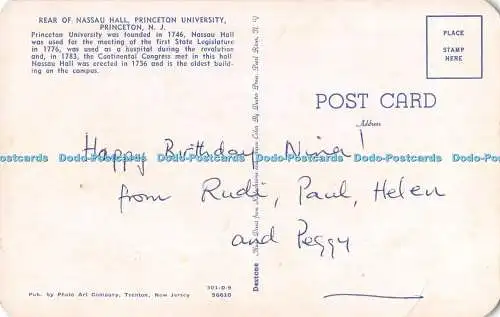 REAR OF NASSAU HALL, PRINCETON UNIVERSITY,
PRINCETON, N. J.
Princeton University was founded in 1746, Nassau Hall
was used for the meeting of the first State Legislature
in 1776, was used as a hospital during the revolution
and, in 1783, the Continental Congress met in this hall.
Nassau Hall was erected in 1756 and is the oldest build-
ing on the campus.
PLACE
STAMP
HERE
POST CARD
Address
Happy Birthday Nina!
from Rudi, Paul, Helen
and Peggy
Dodo-Postcards Dodo-Postcards Dodo-Postcards Dodo-Postcards Dodo-Postcards
Dextone
Made Direct from Kodachrome
Color
301-D-9
Pub. by Photo Art Company, Trenton, New Jersey 56610